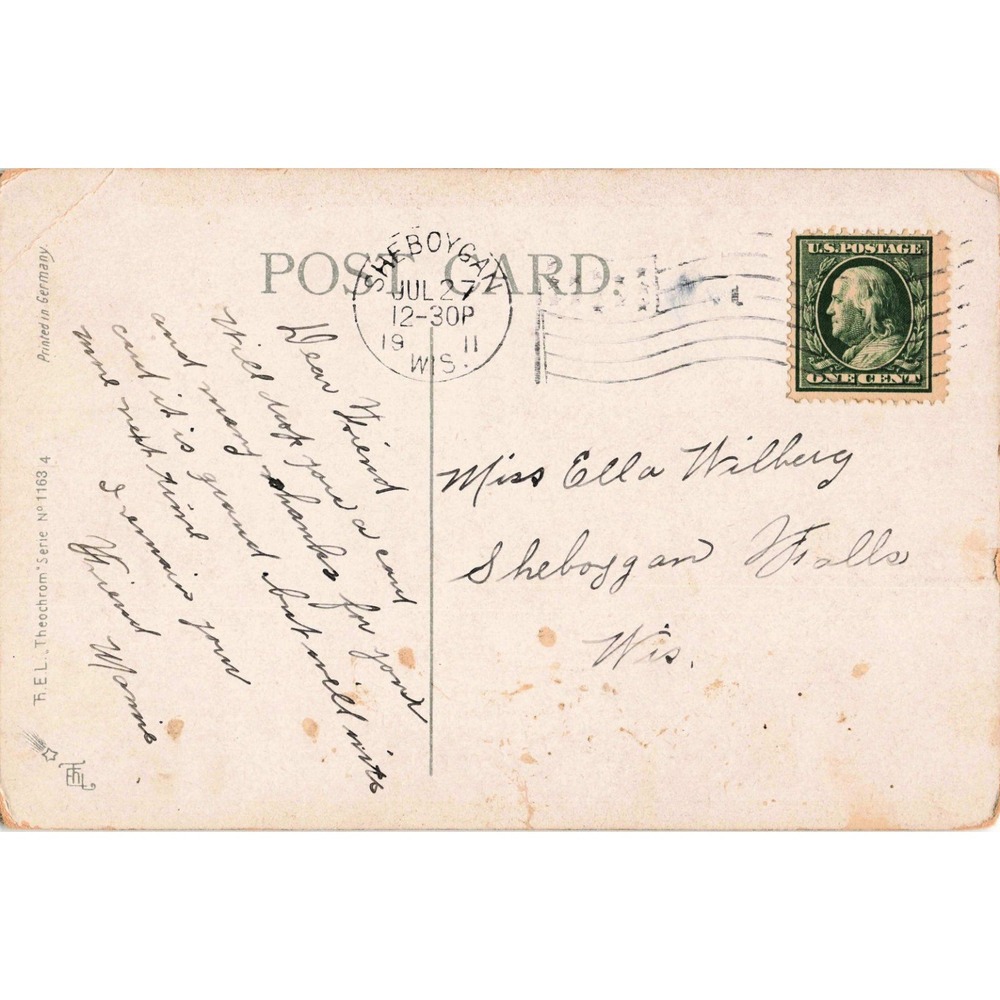 POST CARD.
SHEBOYGAN
JUL 27
12-30P
19 11
WIS.
U.S. POSTAGE
ONE CENT
Printed in Germany.
T.E.L. „Theochrom" Serie No 1163 4
Dear Friend
Will drop you a card
and many thanks for your
card it is grand but will write
more next time
I remain your
Friend Mamie
Miss Ella Wilberg
Sheboygan Falls
Wis.